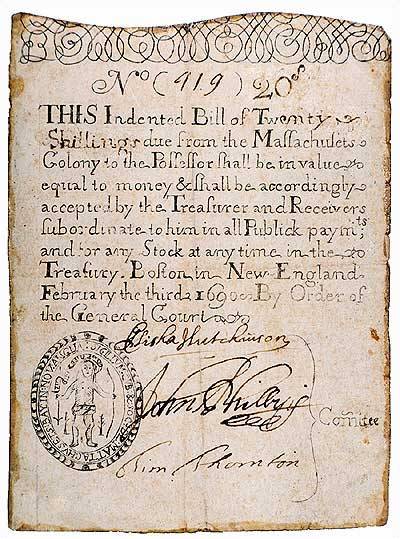 No (919) 20s
THIS Indented Bill of Twenty
Shillings due from the Massachusets
Colony to the Possessor shall be in value
equal to money & shall be accordingly
accepted by the Treasurer and Receivers
subordinate to him in all Publick paymts
and for any Stock at any time in the
Treasury. Boston in New England
February the third 1690. By Order of
the General Court
Elisha Hutchinson
John Phillips
Comitee
Tim Thornton